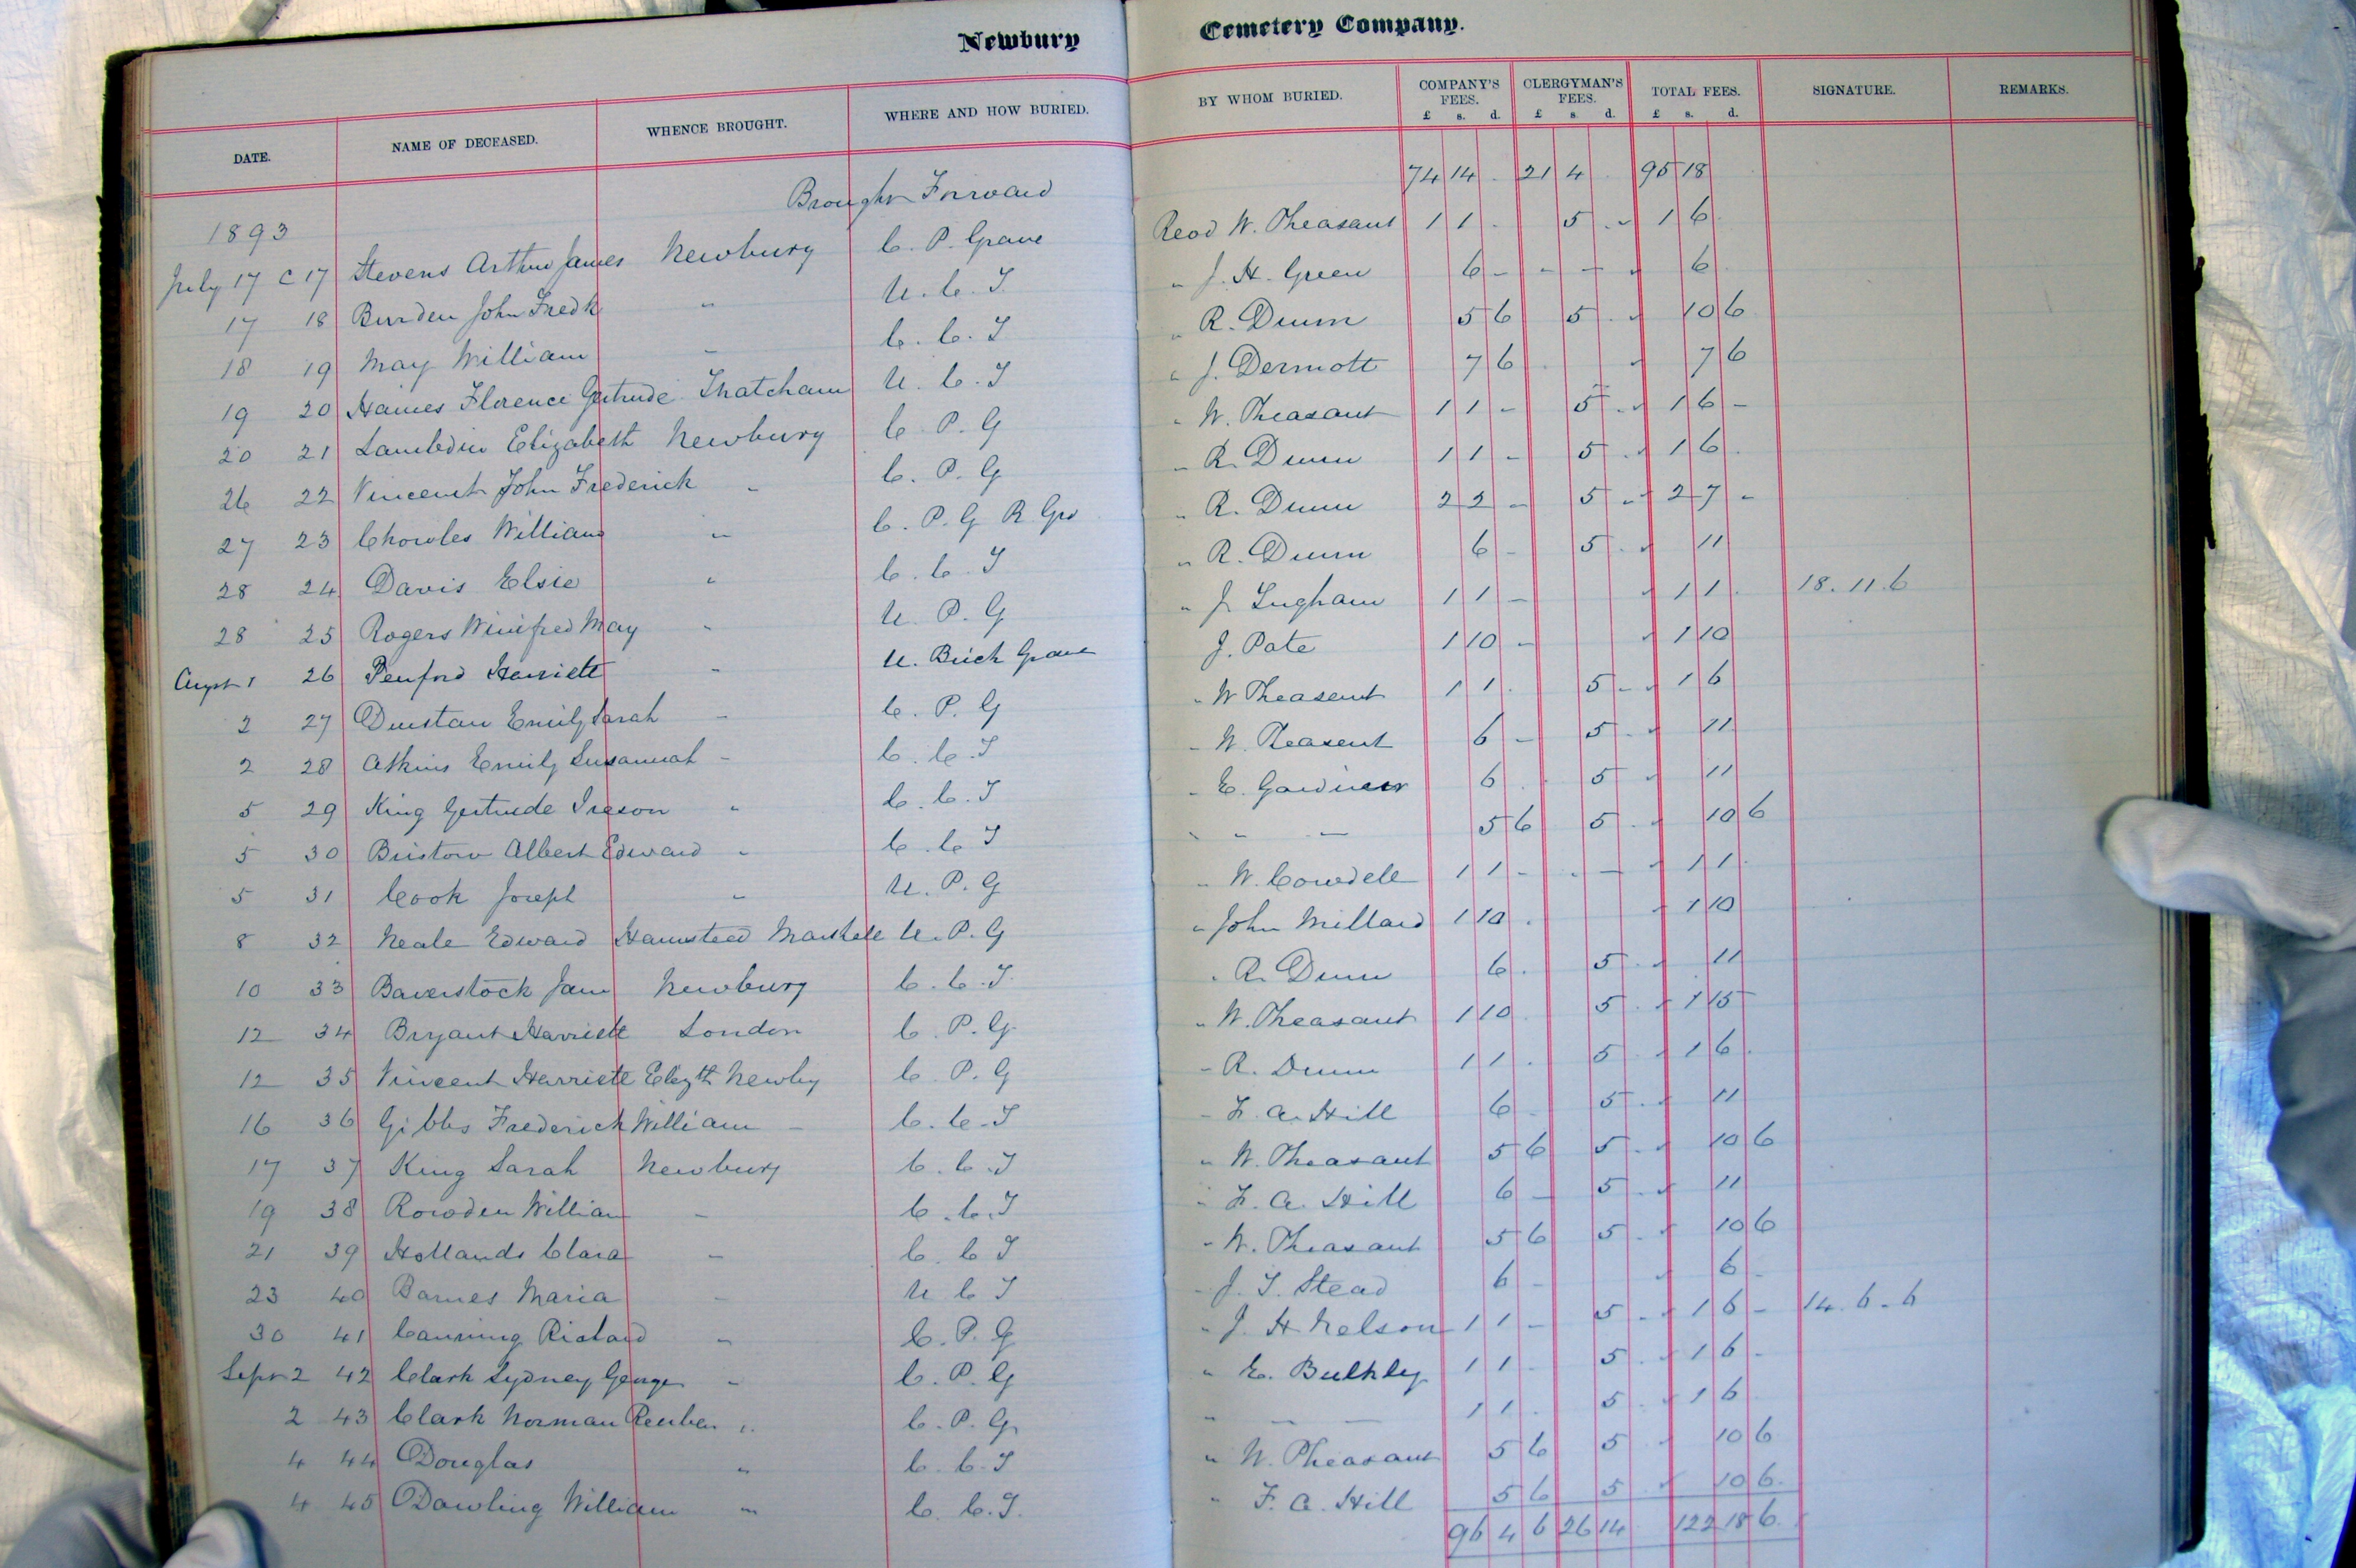 Newbury Cemetery Company.
DATE. NAME OF DECEASED. WHENCE BROUGHT. WHERE AND HOW BURIED. BY WHOM BURIED. COMPANY'S FEES. £ s. d. CLERGYMAN'S FEES. £ s. d. TOTAL FEES. £ s. d. SIGNATURE. REMARKS.
Brought Forward 74 14 . 21 4 . 95 18
1893
July 17 C 17 Stevens Arthur James Newbury C. P. Grave Recd W. Pheasant 1 1 . 5 . 1 6 .
17 18 Burden John Fredk " U. C. I " J. H. Green 6 - - - 6
18 19 May William " C. C. I " R. Dunn 5 6 5 . 10 6
19 20 Haines Florence Gertrude Thatcham U. C. I " J. Dermott 7 6 7 6
20 21 Lambdin Elizabeth Newbury C P. G " W. Pheasant 1 1 - 5 - 1 6 -
26 22 Vincent John Frederick " C. P. G " R. Dunn 1 1 - 5 . 1 6 .
27 23 Chowles William " C. P. G R. Gro " R. Dunn 2 2 - 5 - 2 7 -
28 24 Davis Elsie " C. C. I " R. Dunn 6 - 5 . 11
28 25 Rogers Winifred May " U. P. G " J. Lugham 1 1 - 1 1 . 18. 11. 6
Augst 1 26 Penford Harriett " U. Brick Grave J. Pate 1 10 - 1 10
2 27 Dunstan Emily Sarah " C. P. G " W Pheasent 1 1 . 5 - 1 6
2 28 Atkins Emily Susannah " C. C. I " W. Pheasent 6 - 5 . 11
5 29 King Gertrude Ireson " C. C. I " E. Gardiner 6 . 5 11
5 30 Bristow Albert Edward " C. C. I " " " 5 6 5 . 10 6
5 31 Cook Joseph " U. P. G " W. Cowdell 1 1 - . - 1 1
8 32 Neale Edward Hamsteed Marshall U. P. G " John Millard 1 10 . 1 10
10 33 Baverstock Jane Newbury C. C. I " R. Dunn 6 . 5 . 11
12 34 Bryant Harriett London C. P. G " W. Pheasant 1 10 . 5 . 1 15
12 35 Vincent Harriett Elizth Newby C. P. G " R. Dunn 1 1 . 5 . 1 6 .
16 36 Gibbs Frederick William " C. C. I " F. A. Hill 6 - 5 . 11
17 37 King Sarah Newbury C. C. I " W. Pheasant 5 6 5 . 10 6
19 38 Rowden William " C. C. I " F. A. Hill 6 - 5 . 11
21 39 Hollands Clara " C. C I " W. Pheasant 5 6 5 . 10 6
23 40 Barnes Maria " U C I " J. T. Stead 6 - 6 -
30 41 Canning Richard " C. P. G " J. H Nelson 1 1 - 5 . 1 6 - 14. 6. 6
Sepr 2 42 Clark Sydney George " C. P. G " E. Bulkley 1 1 . 5 . 1 6 -
2 43 Clark Norman Reuben " C. P. G " " " 1 1 . 5 . 1 6
4 44 Douglas " C. C. I " W. Pheasant 5 6 5 . 10 6
4 45 Dowling William " C. C. I. " F. A. Hill 5 6 5 10 6.
96 4 6 26 14 . 122 18 6.